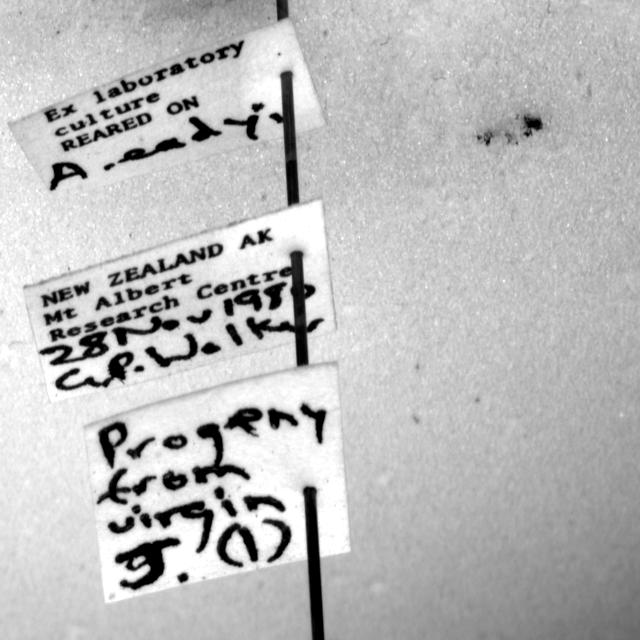 Ex laboratory
culture
REARED ON
NEW ZEALAND AK
Mt Albert
Research Centre
28 Nov 198
G.P. Walker
Progeny
from
virgin
(1)